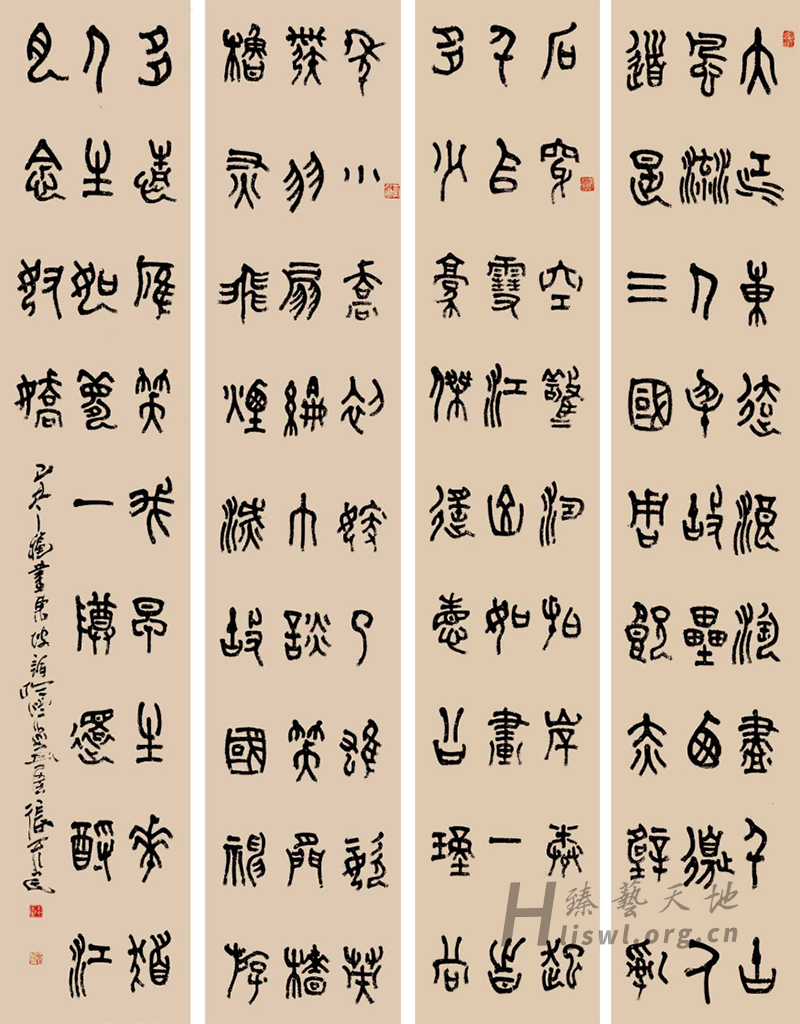 大江東去浪淘盡千古
風流人物故壘西邊人
道是三國周郎赤壁亂
石穿空驚濤拍岸捲起
千堆雪江山如畫一時
多少豪傑遙想公瑾當
年小喬初嫁了雄姿英
發羽扇綸巾談笑間檣
櫓灰飛煙滅故國神遊
多情應笑我早生華髮
人生如夢一樽還酹江
月念奴嬌
臻藝天地
Hliswl.org.cn